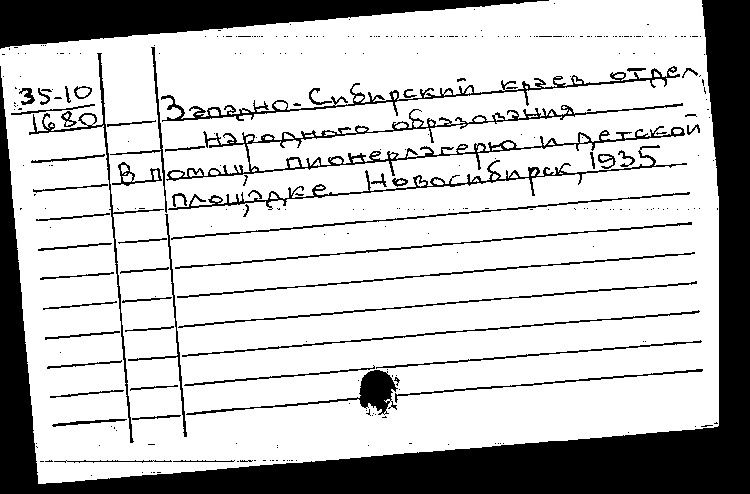 35-10
1680
Западно-Сибирский краев. отдел
народного образования.
В помощь пионерлагерю и детской
площадке. Новосибирск, 1935